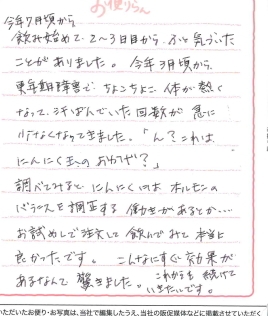 お便りらん
今年7月頃から
飲み始めて2~3日目から、ふと気づいた
ことがありました。今年3月頃から
更年期障害で ちょこちょこ 体が熱く
なって、汗ばんでいた回数が 急に
少なくなってきました。「ん?これは
にんにく玉の おかげ?」
調べてみると、にんにくは ホルモンの
バランスを調整する 働きがあるとか…
お試しで注文して飲んでみて本当に
良かったです。こんなにすぐ効果が
あるなんて 驚きました。これからも続けて
いきたいです。
いただいたお便り・お写真は、当社で編集したうえ、当社の販促媒体などに掲載させていただく